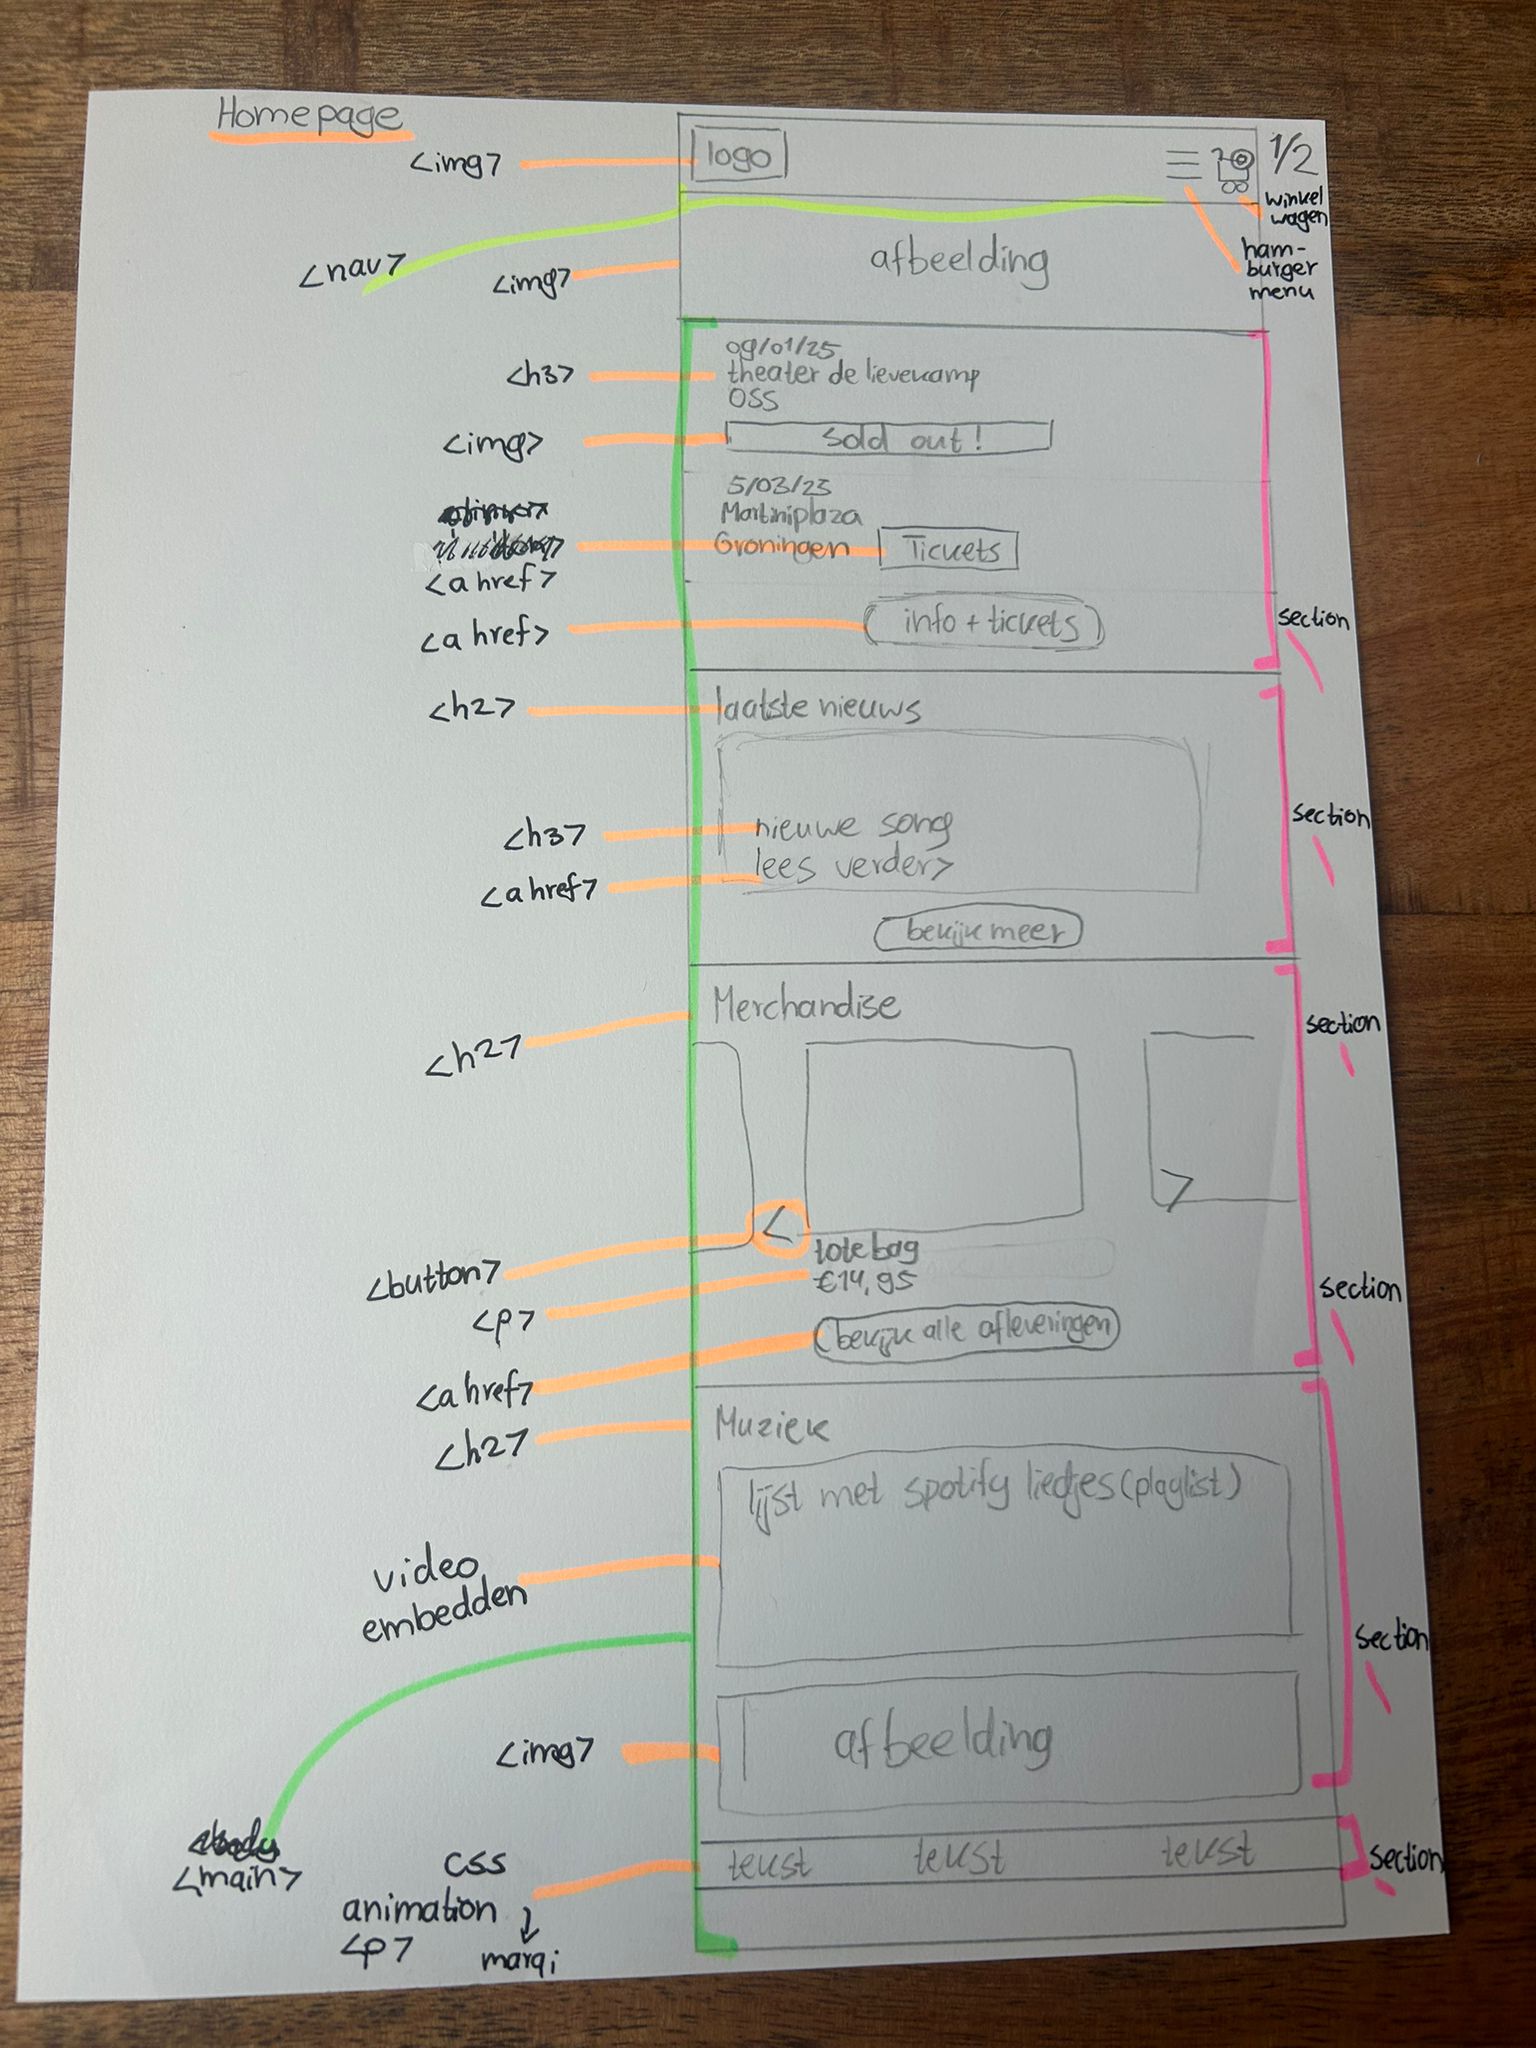 Homepage
<img>
logo
1/2
winkel
wagen
ham-
burger
menu
<nav>
<img>
afbeelding
<h3>
09/01/25
theater de lievekamp
OSS
<img>
sold out!
5/03/25
Martiniplaza
Groningen
Tickets
<a href>
<a href>
info + tickets
section
<h2>
laatste nieuws
<h3>
nieuwe song
<a href>
lees verder>
bekijk meer
section
<h2>
Merchandise
section
<
>
<button>
tote bag
<p>
€14,95
section
<a href>
bekijk alle afleveringen
<h2>
Muziek
lijst met spotify liedjes (playlist)
video
embedden
section
<img>
afbeelding
<main>
css
animation
<p>
marqi
tekst tekst tekst
section